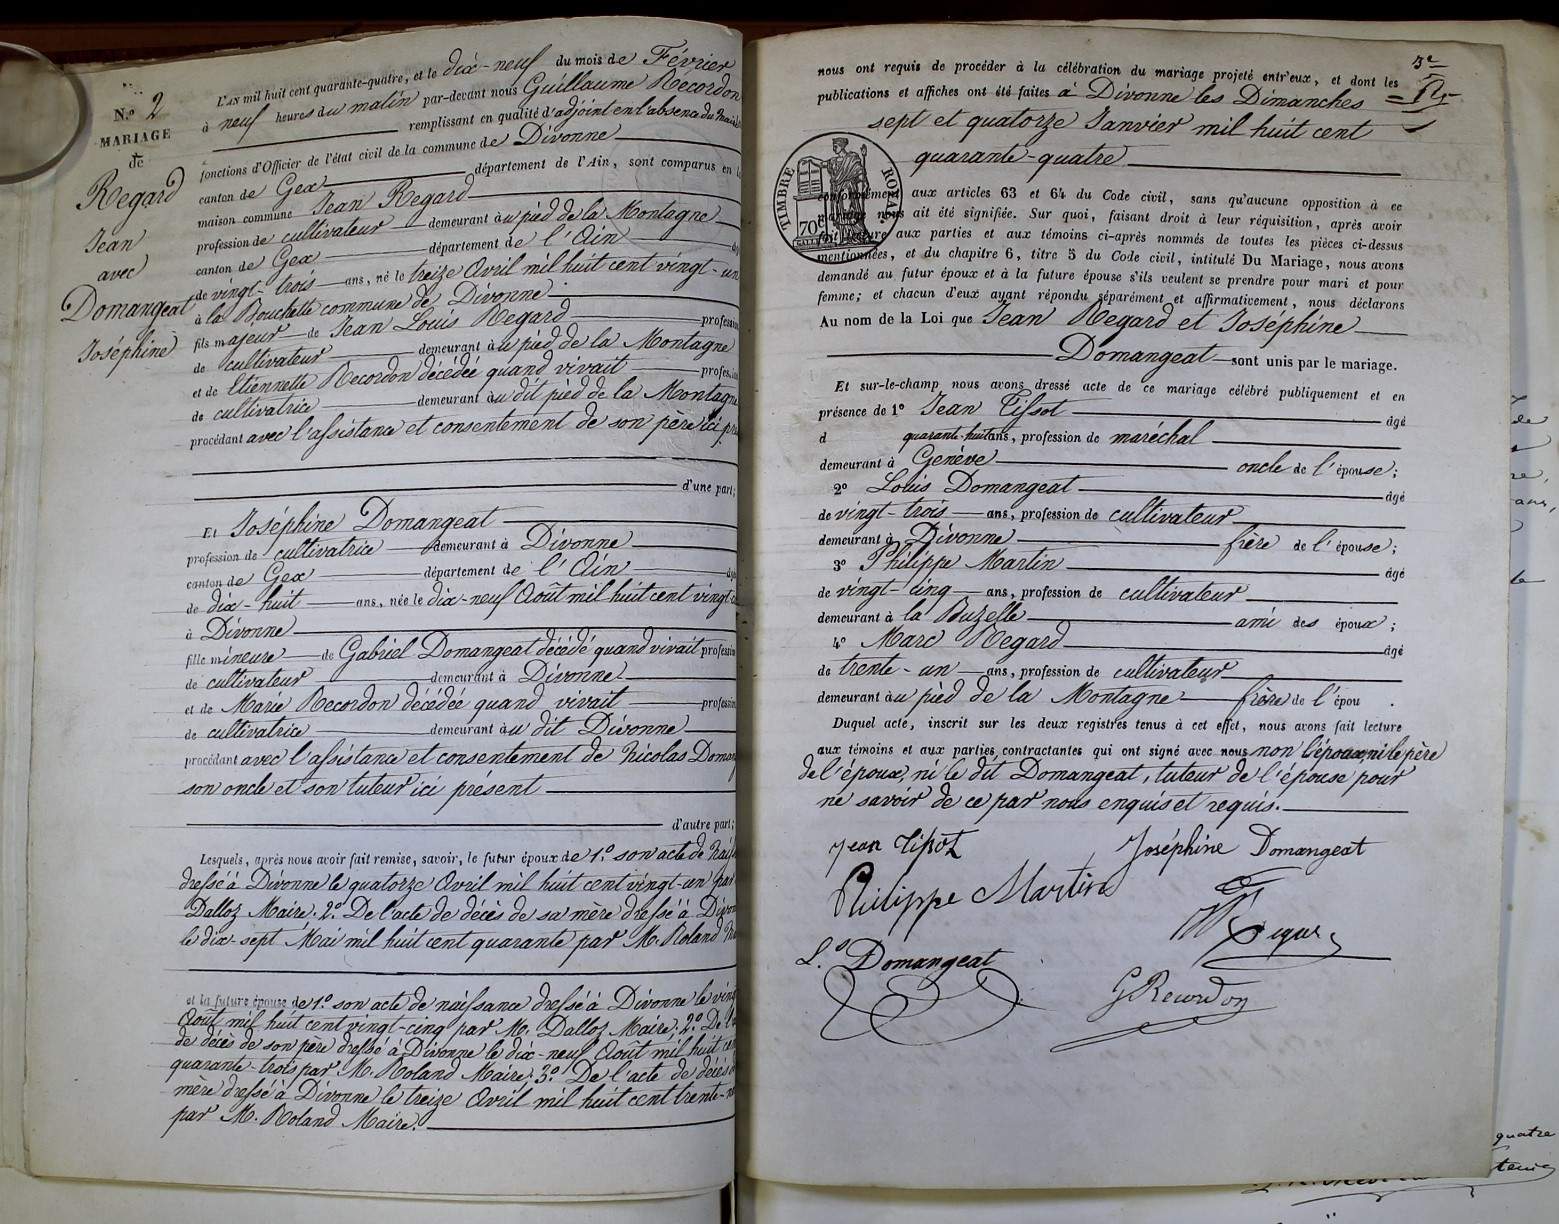 N.o 2
MARIAGE
de
Regard
Jean
avec
Domangeat
Joséphine
L'an mil huit cent quarante-quatre, et le dix-neuf du mois de Février
à neuf heures du matin par-devant nous Guillaume Recordon
remplissant en qualité d'adjoint en l'absence du
fonctions d'Officier de l'état civil de la commune de Divonne
canton de Gex département de l'Ain, sont comparus en
maison commune Jean Regard
profession de cultivateur demeurant au pied de la Montagne
canton de Gex département de l'Ain
de vingt-trois ans, né le treize Avril mil huit cent vingt-un
à la Bouchette commune de Divonne
fils majeur de Jean Louis Regard profession
de cultivateur demeurant au pied de la Montagne
et de Etiennette Recordon décédée quand vivait profession
de cultivatrice demeurant au dit pied de la Montagne
procédant avec l'assistance et consentement de son père ici
d'une part;
Et Joséphine Domangeat
profession de cultivatrice demeurant à Divonne
canton de Gex département de l'Ain
de dix-huit ans, née le dix-neuf Août mil huit cent vingt-
à Divonne
fille mineure de Gabriel Domangeat décédé quand vivait profession
de cultivateur demeurant à Divonne
et de Marie Recordon décédée quand vivait profession
de cultivatrice demeurant au dit Divonne
procédant avec l'assistance et consentement de Nicolas Doman
son oncle et son tuteur ici présent
d'autre part;
Lesquels, après nous avoir fait remise, savoir, le futur époux de 1.o son acte de
dressé à Divonne le quatorze Avril mil huit cent vingt-un par
Dalloz Maire. 2.o De l'acte de décès de sa mère dressé à Divon
le dix-sept Mai mil huit cent quarante par M. Roland
et la future épouse de 1.o son acte de naissance dressé à Divonne le ving
Août mil huit cent vingt-cinq par M. Dalloz Maire. 2.o De l'
de décès de son père dressé à Divonne le dix-neuf Août mil huit
quarante-trois par M. Roland Maire. 3.o De l'acte de décès
mère dressé à Divonne le treize Avril mil huit cent trente-
par M. Roland Maire.
nous ont requis de procéder à la célébration du mariage projeté entr'eux, et dont les
publications et affiches ont été faites à Divonne les Dimanches
sept et quatorze Janvier mil huit cent
quarante-quatre
TIMBRE ROYAL
70c
conformément aux articles 63 et 64 du Code civil, sans qu'aucune opposition à ce
mariage nous ait été signifiée. Sur quoi, faisant droit à leur réquisition, après avoir
fait lecture aux parties et aux témoins ci-après nommés de toutes les pièces ci-dessus
mentionnées, et du chapitre 6, titre 5 du Code civil, intitulé Du Mariage, nous avons
demandé au futur époux et à la future épouse s'ils veulent se prendre pour mari et pour
femme; et chacun d'eux ayant répondu séparément et affirmativement, nous déclarons
Au nom de la Loi que Jean Regard et Joséphine
Domangeat sont unis par le mariage.
Et sur-le-champ nous avons dressé acte de ce mariage célébré publiquement et en
présence de 1o Jean Tissot âgé
d quarante-huit ans, profession de maréchal
demeurant à Genève oncle de l'épouse;
2o Louis Domangeat âgé
de vingt-trois ans, profession de cultivateur
demeurant à Divonne frère de l'épouse;
3o Philippe Martin âgé
de vingt-cinq ans, profession de cultivateur
demeurant à la Buzelle ami des époux;
4o Marc Regard âgé
de trente-un ans, profession de cultivateur
demeurant au pied de la Montagne frère de l'épou .
Duquel acte, inscrit sur les deux registres tenus à cet effet, nous avons fait lecture
aux témoins et aux parties contractantes qui ont signé avec nous non l'époux, ni le père
de l'époux, ni le dit Domangeat, tuteur de l'épouse pour
ne savoir de ce par nous enquis et requis.
Jean Tissot
Joséphine Domangeat
Philippe Martin
L.s Domangeat
G Recordon
quatre